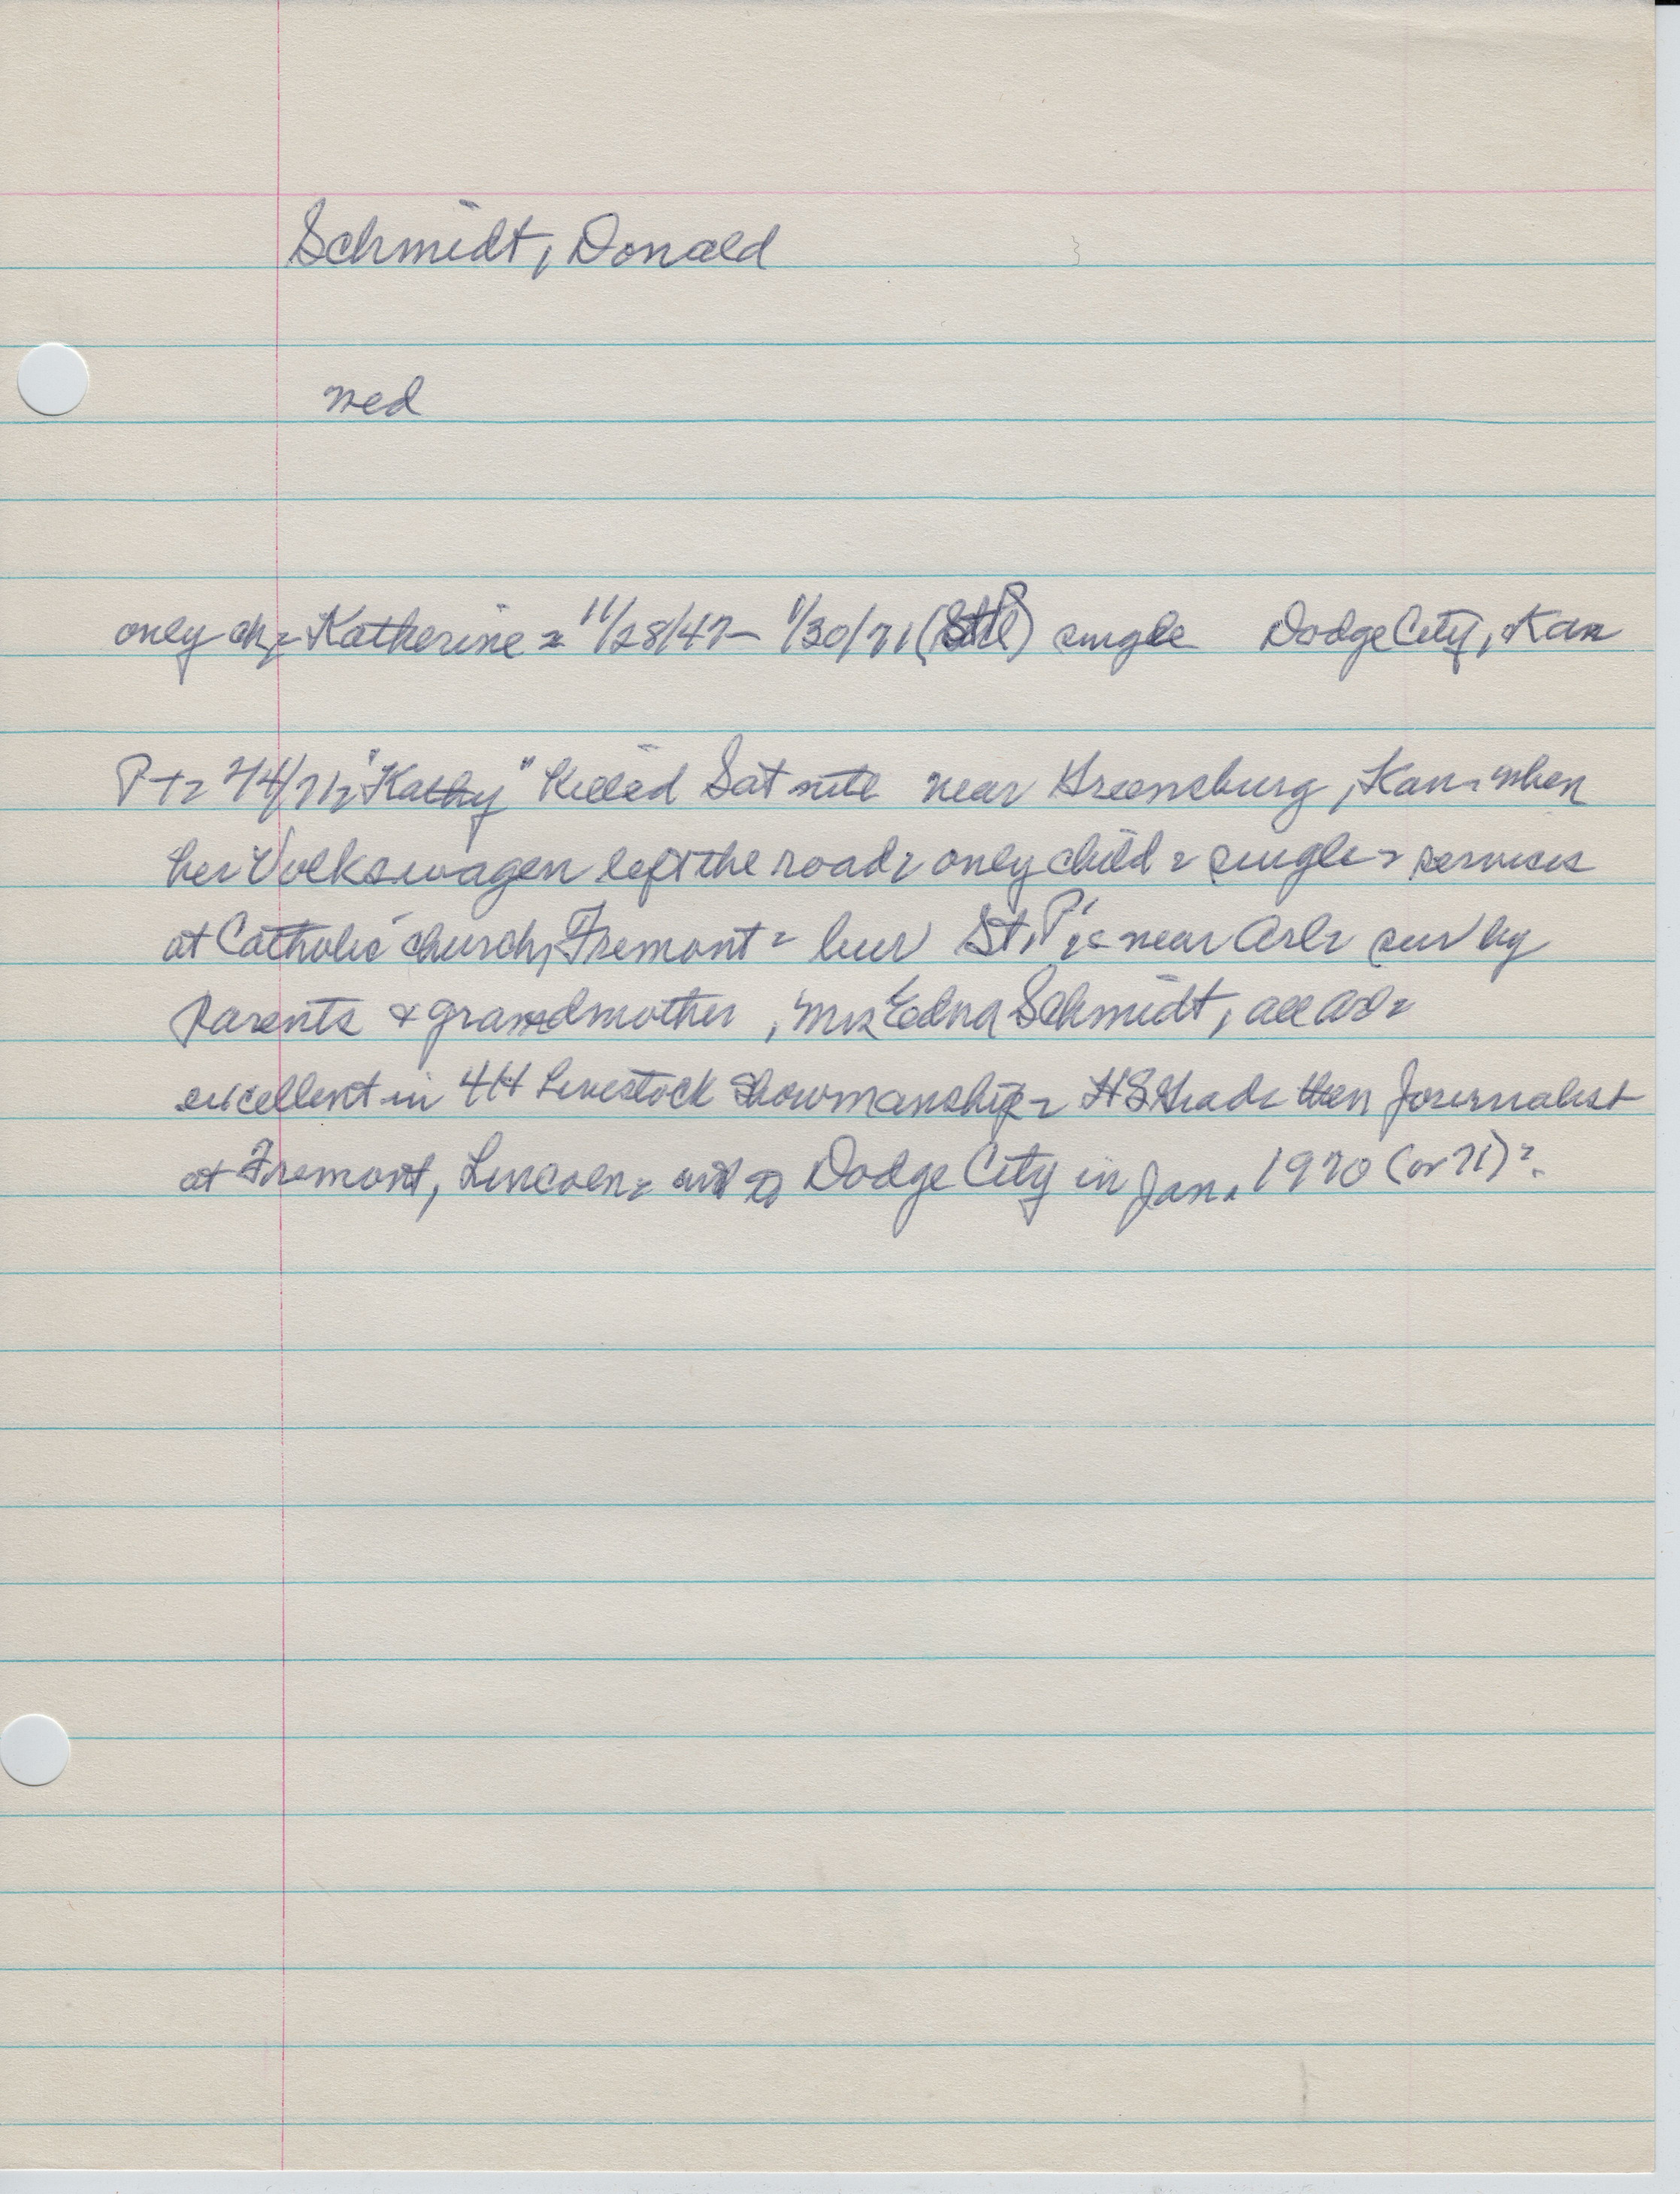 Schmidt, Donald
med
only ch = Katherine = 11/28/47 - 1/30/71 () single Dodge City, Kan
P+= 2/4/71 = "Kathy" killed Sat nite near Greensburg, Kan. when
her Volkswagen left the road = only child = single = services
at Catholic church, Fremont = bur St. P's near Arl = sur by
Parents & grandmother, Mrs Edna Schmidt, all Arl =
excellent in 4H Livestock Showmanship = HS Grad = then Journalist
at Fremont, Lincoln = Dodge City in Jan. 1970 (or 71)?.